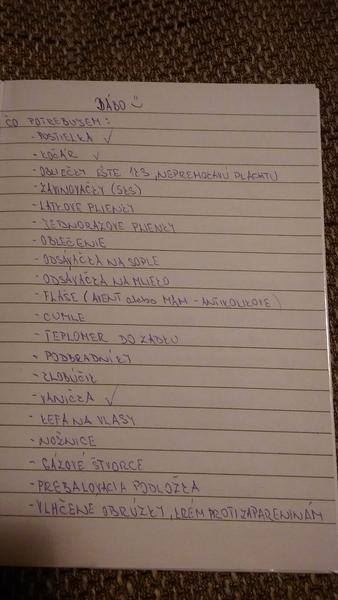 BÁBO
ČO POTREBUJEM:
- POSTIEĽKA ✓
- KOČÁR ✓
- OBLIEČKY EŠTE 1KS, NEPREMOKAVÚ PLACHTU
- ZAVINOVAČKY (5KS)
- LÁTKOVÉ PLIENKY
- JEDNORAZOVÉ PLIENKY
- OBLEČENIE
- ODSÁVAČKA NA SOPLE
- ODSÁVAČKA NA MLIEKO
- FĽAŠE (AVENT alebo MAM - ANTIKOLIKOVE)
- CUMLE
- TEPLOMER DO ZADKU
- PODBRADNÍKY
- KLOBÚČIK
- VANIČKA ✓
- KEFA NA VLASY
- NOŽNICE
- GÁZOVÉ ŠTVORCE
- PREBAĽOVACIA PODLOŽKA
- VLHČENÉ OBRÚSKY, KRÉM PROTI ZAPARENINÁM